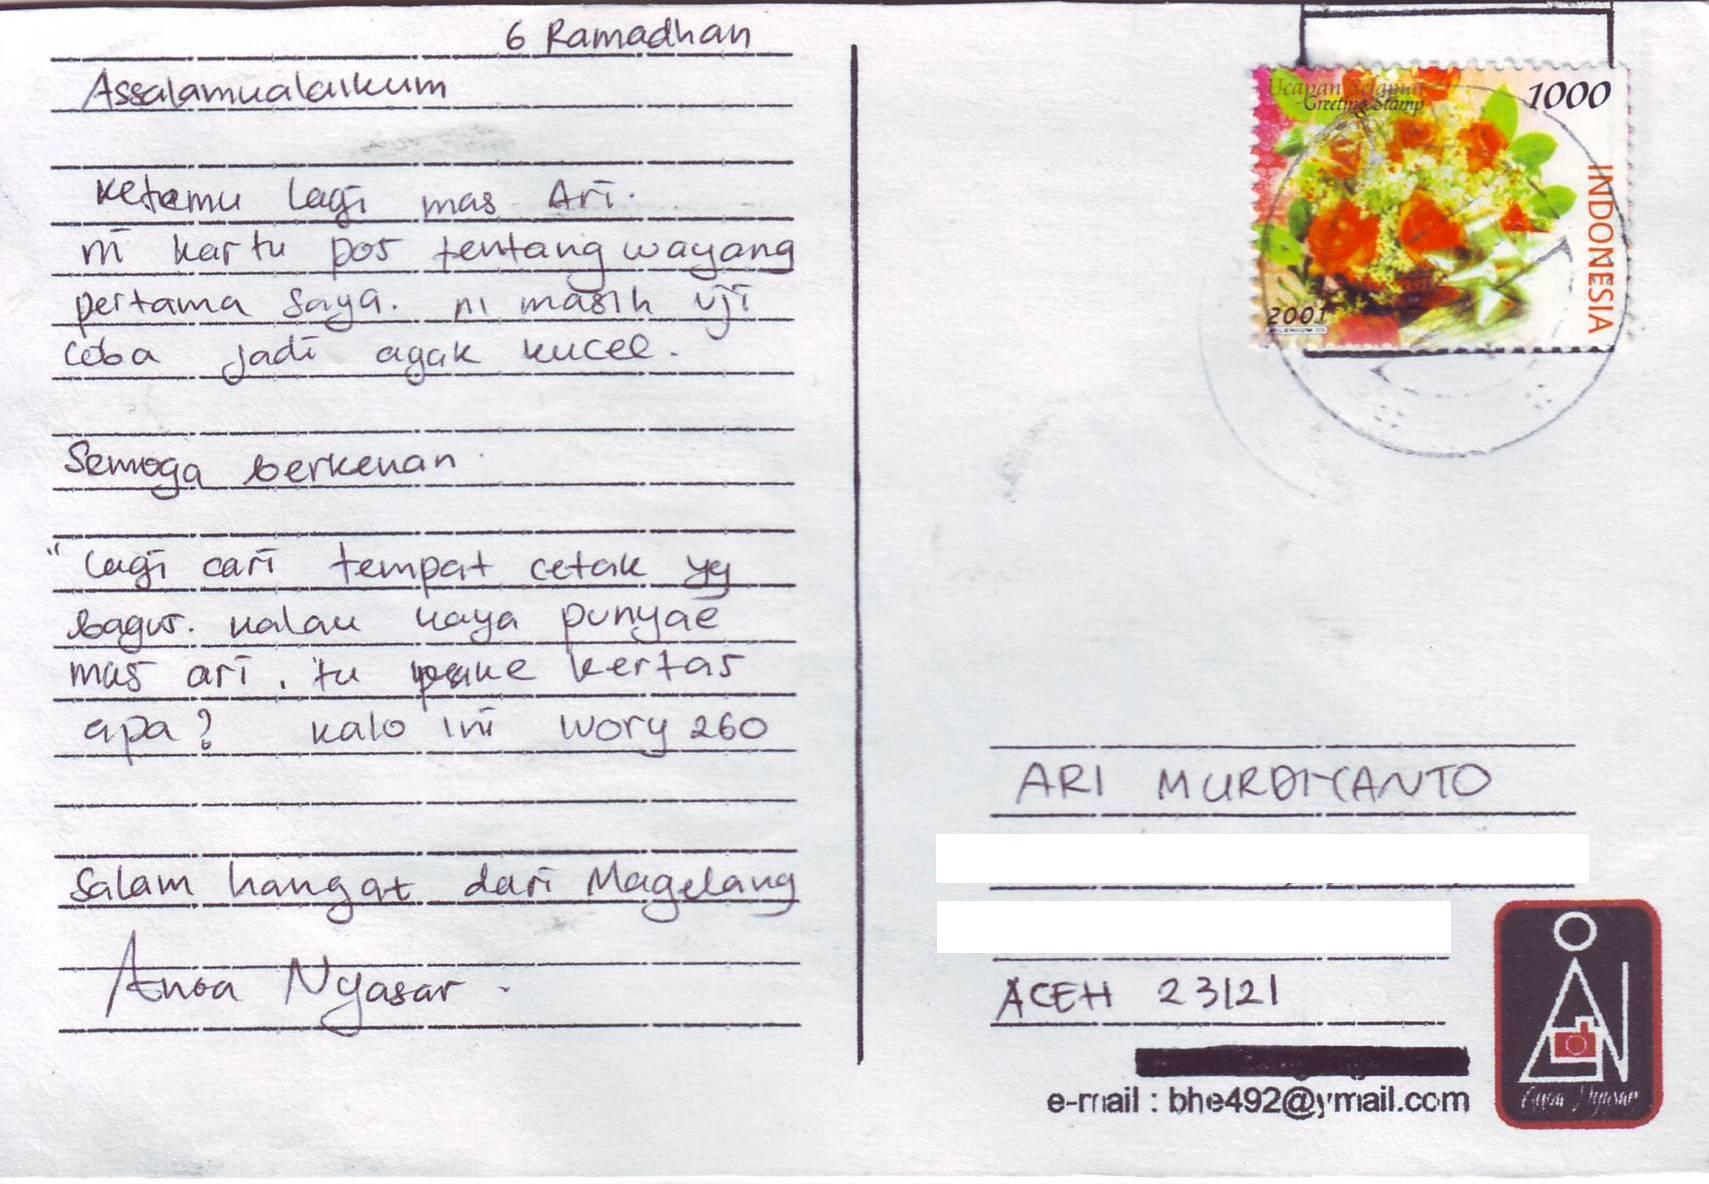 6 Ramadhan
Assalamualaikum
Ketemu lagi mas Ari.
ni kartu pos tentang wayang
pertama saya. ni masih uji
coba jadi agak kucel.
Semoga berkenan.
"Lagi cari tempat cetak yg
bagus. kalau kaya punyae
mas ari. tu pake kertas
apa? kalo ini Ivory 260
Salam hangat dari Magelang
Anoa Nyasar.
Ucapan Selamat
Greeting Stamp
1000
INDONESIA
2001
ARI MURDIYANTO
ACEH 23121
e-mail : bhe492@ymail.com
AN
Anoa Nyasar